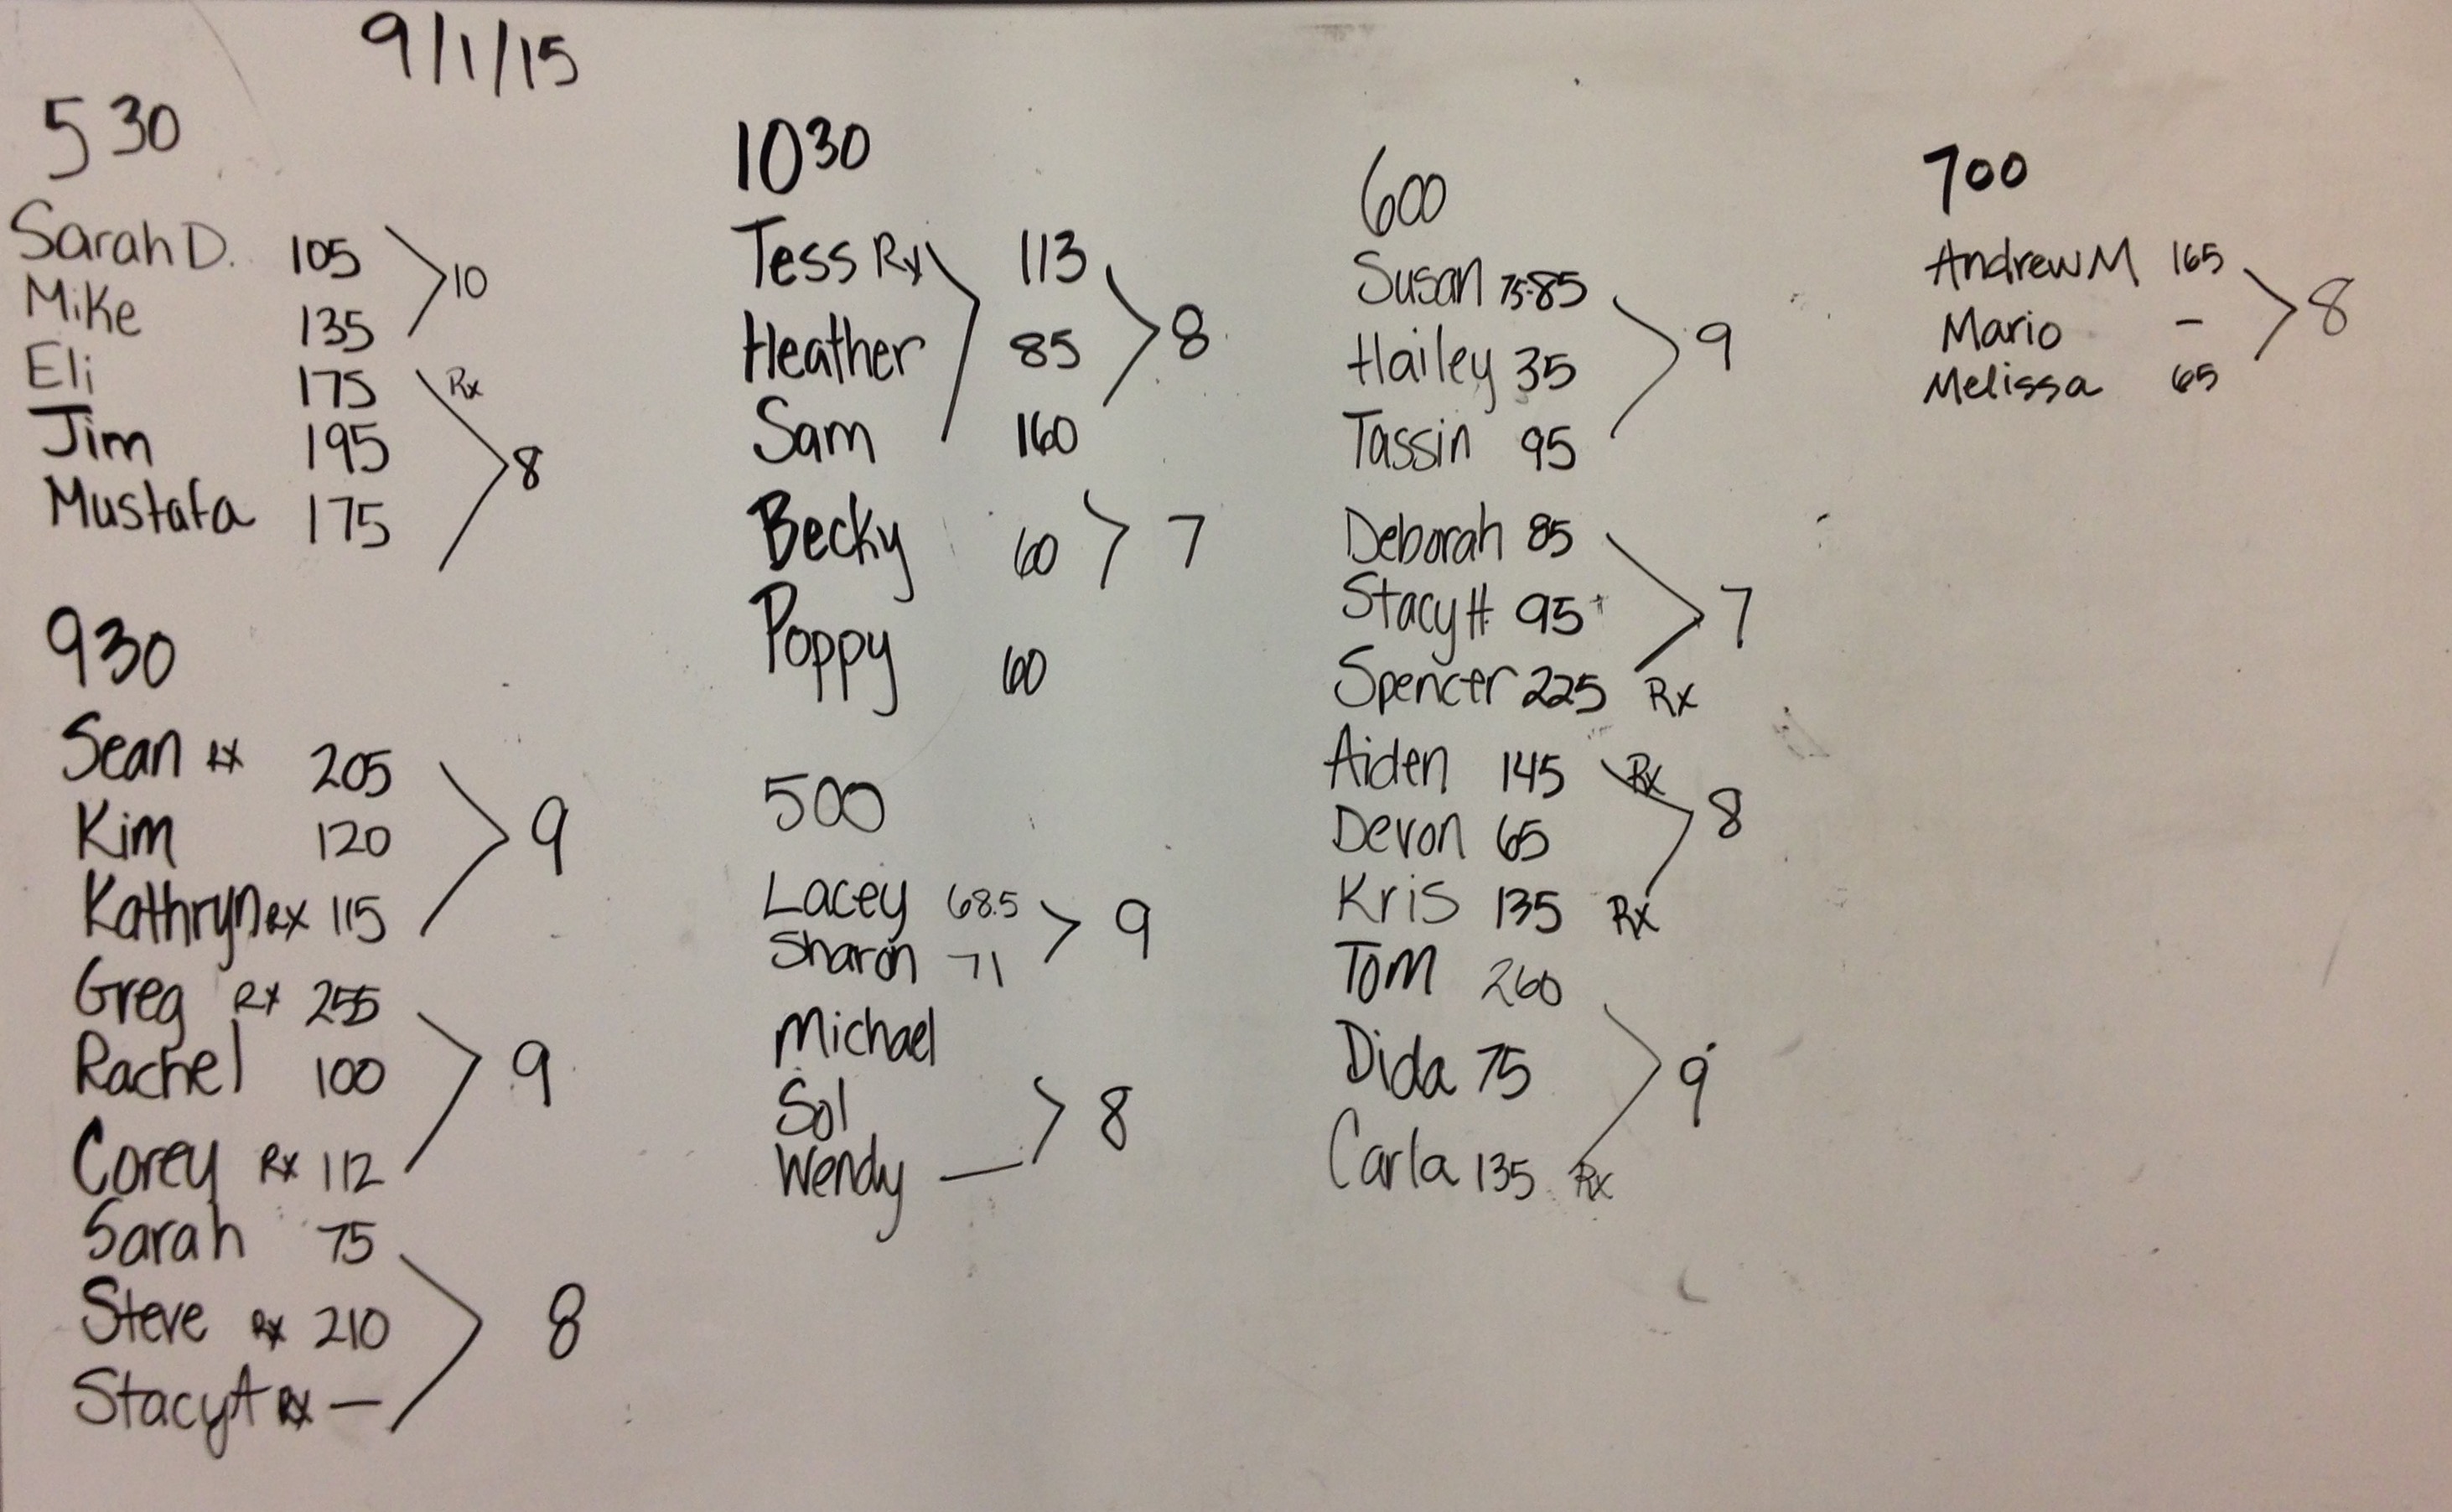 9/1/15
530
Sarah D. 105
Mike 135 10
Eli 175 Rx
Jim 195 8
Mustafa 175
930
Sean Rx 205
Kim 120 9
Kathryn Rx 115
Greg Rx 255
Rachel 100 9
Corey Rx 112
Sarah 75
Steve Rx 210 8
Stacy A Rx —
1030
Tess Rx 113
Heather 85 8
Sam 160
Becky 60 7
Poppy 60
500
Lacey 68.5 9
Sharon 71
Michael
Sol 8
Wendy —
600
Susan 75-85
Hailey 35 9
Tassin 95
Deborah 85
Stacy H 95+ 7
Spencer 225 Rx
Aiden 145 Rx
Devon 65 8
Kris 135 Rx
Tom 260
Dida 75 9
Carla 135 Rx
700
Andrew M 165
Mario - 8
Melissa 65